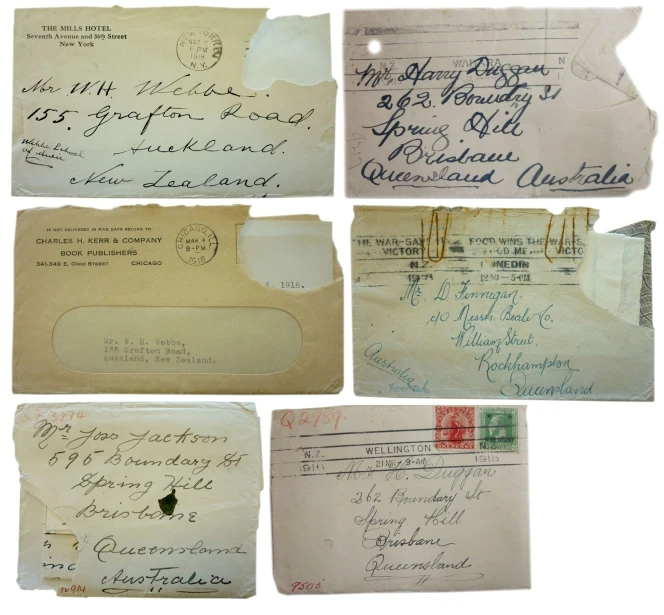 THE MILLS HOTEL
Seventh Avenue and 36th Street
New York
NEW YORK
6 PM
1918
N.Y.
Mr. W. H Webbe.
155. Grafton Road.
Auckland.
New Zealand.
Webbe School
of Music
N.Z. WAIHIRA N
Mr. Harry Duggan
262. Boundry St
Spring Hill
Brisbane
Queensland Australia
IF NOT DELIVERED IN FIVE DAYS RETURN TO
CHARLES H. KERR & COMPANY
BOOK PUBLISHERS
341-349 E. OHIO STREET CHICAGO
CHICAGO, ILL
MAR 4
8-PM
1918
1918.
Mr. W. H. Webbe,
155 Grafton Road,
Auckland, New Zealand.
HE WAR-SAV FOOD WINS THE WAR-S
VICTORY OOD ME VICTO
N.Z. DUNEDIN
1918 5-PM
Mr D Finnegan.
c/o Messrs Beale & Co.
William Street.
Rockhampton
Queensland
Australia
Mr Joss Jackson
595 Boundary St
Spring Hill
Brisbane
Queensland
Australia
Q2989.
N.Z. WELLINGTON
1918 21 9-AM 1918
ONE PENNY
Mr H. Duggan
262 Boundary St
Spring Hill
Brisbane
Queensland
9505